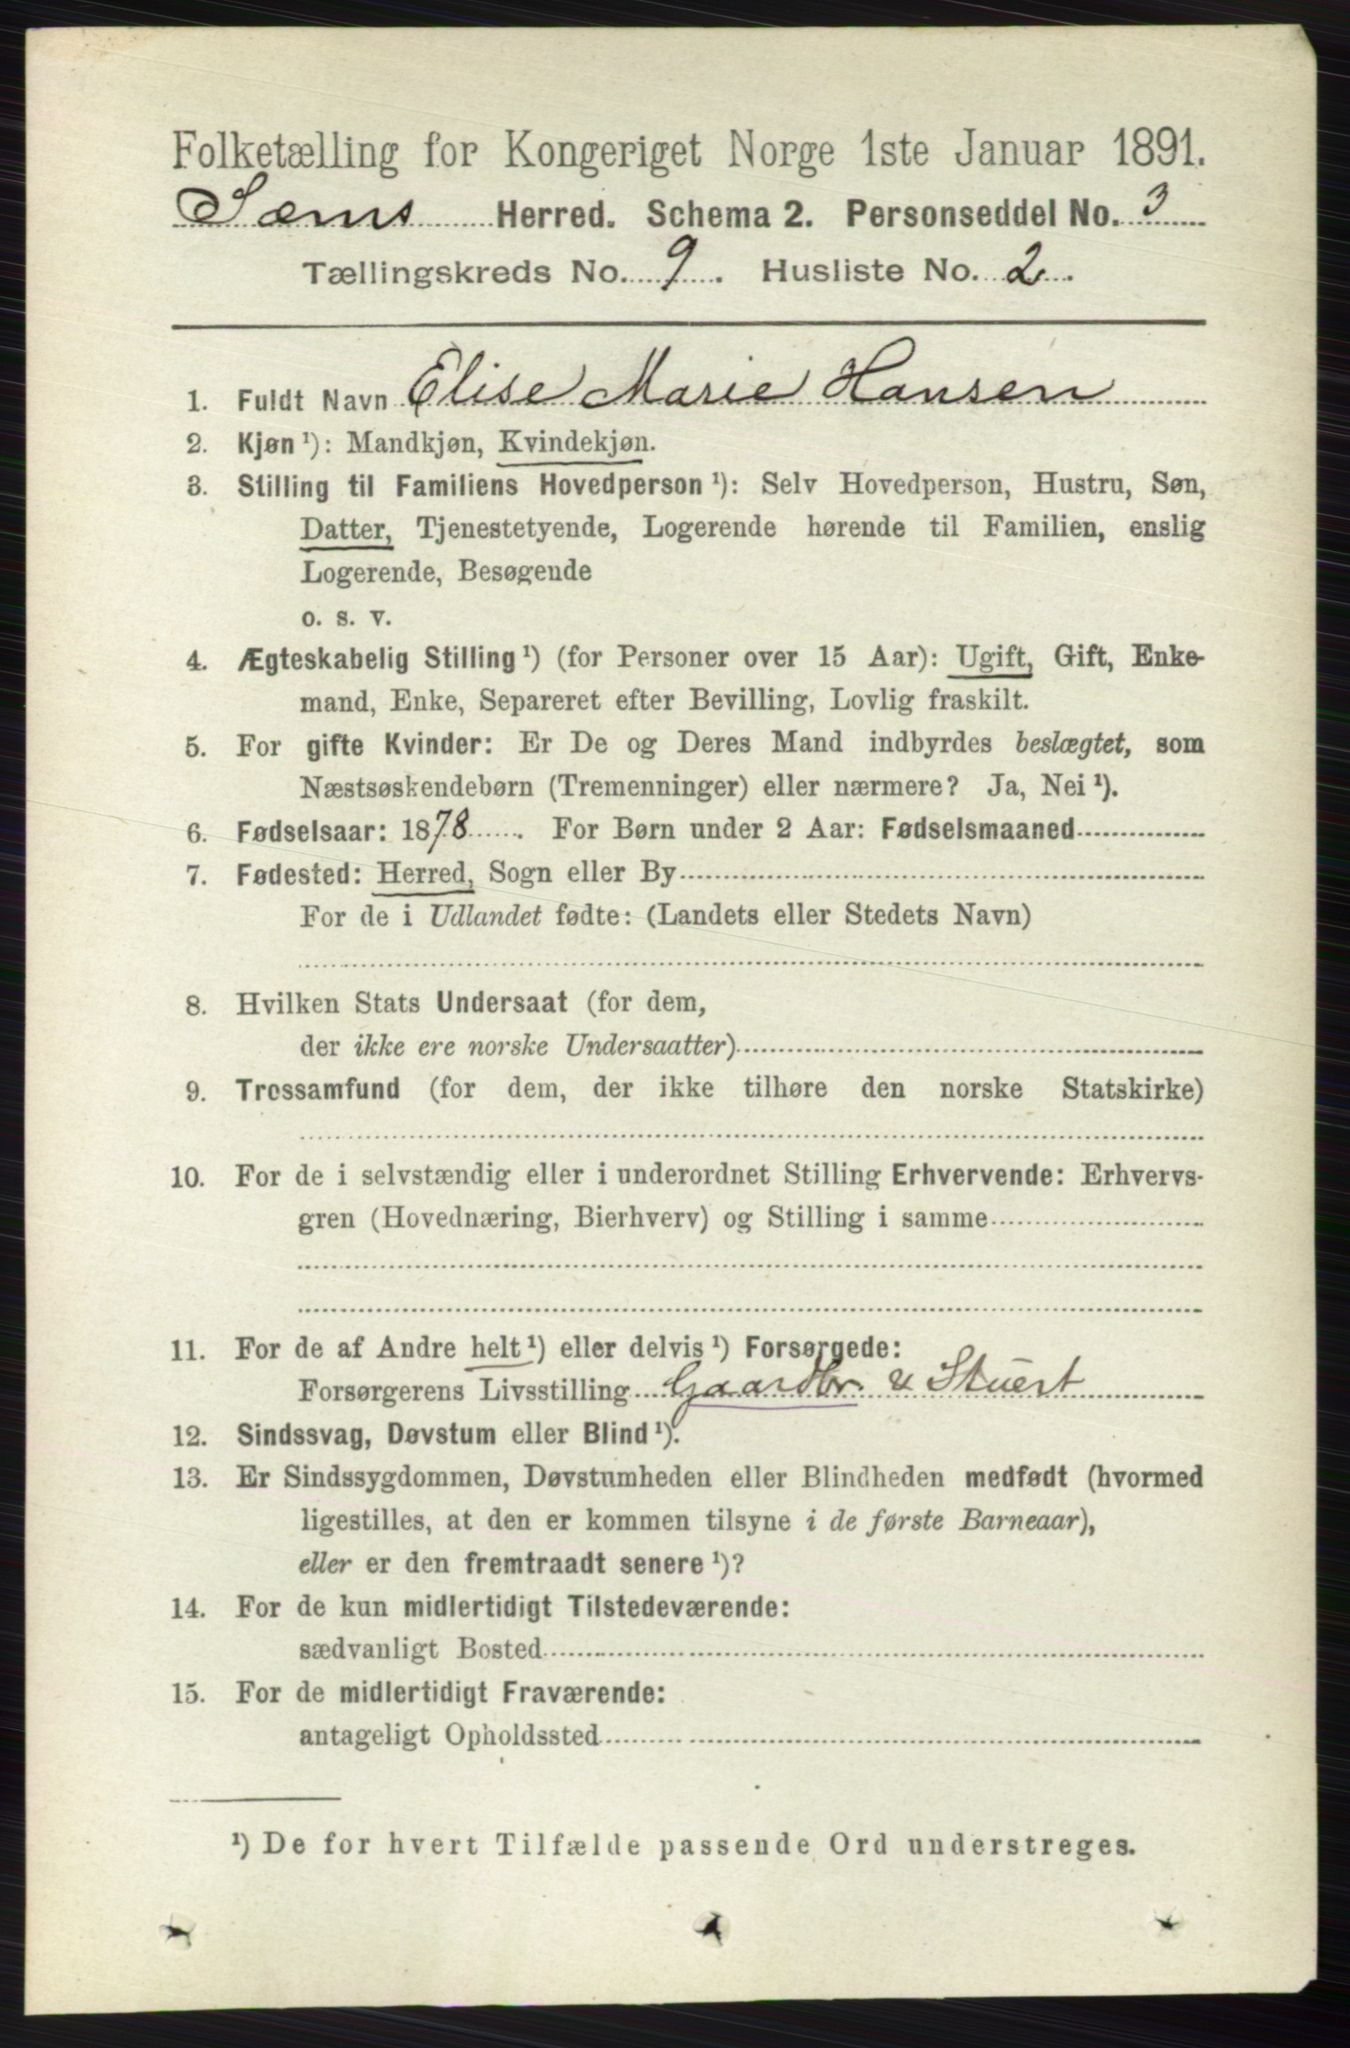 Folketælling for Kongeriget Norge 1ste Januar 1891.
Sæms Herred. Schema 2. Personseddel No. 3
Tællingskreds No. 9. Husliste No. 2.
1. Fuldt Navn Elise Marie Hansen
2. Kjøn ¹): Mandkjøn, Kvindekjøn.
3. Stilling til Familiens Hovedperson ¹): Selv Hovedperson, Hustru, Søn,
Datter, Tjenestetyende, Logerende hørende til Familien, enslig
Logerende, Besøgende
o. s. v.
4. Ægteskabelig Stilling ¹) (for Personer over 15 Aar): Ugift, Gift, Enke-
mand, Enke, Separeret efter Bevilling, Lovlig fraskilt.
5. For gifte Kvinder: Er De og Deres Mand indbyrdes beslægtet, som
Næstsøskendebørn (Tremenninger) eller nærmere? Ja, Nei ¹).
6. Fødselsaar: 1878. For Børn under 2 Aar: Fødselsmaaned
7. Fødested: Herred, Sogn eller By
For de i Udlandet fødte: (Landets eller Stedets Navn)
8. Hvilken Stats Undersaat (for dem,
der ikke ere norske Undersaatter)
9. Trossamfund (for dem, der ikke tilhøre den norske Statskirke)
10. For de i selvstændig eller i underordnet Stilling Erhvervende: Erhvervs-
gren (Hovednæring, Bierhverv) og Stilling i samme
11. For de af Andre helt ¹) eller delvis ¹) Forsørgede:
Forsørgerens Livsstilling Gaardbr. & Stuert
12. Sindssvag, Døvstum eller Blind ¹).
13. Er Sindssygdommen, Døvstumheden eller Blindheden medfødt (hvormed
ligestilles, at den er kommen tilsyne i de første Barneaar),
eller er den fremtraadt senere ¹)?
14. For de kun midlertidigt Tilstedeværende:
sædvanligt Bosted
15. For de midlertidigt Fraværende:
antageligt Opholdssted
¹) De for hvert Tilfælde passende Ord understreges.